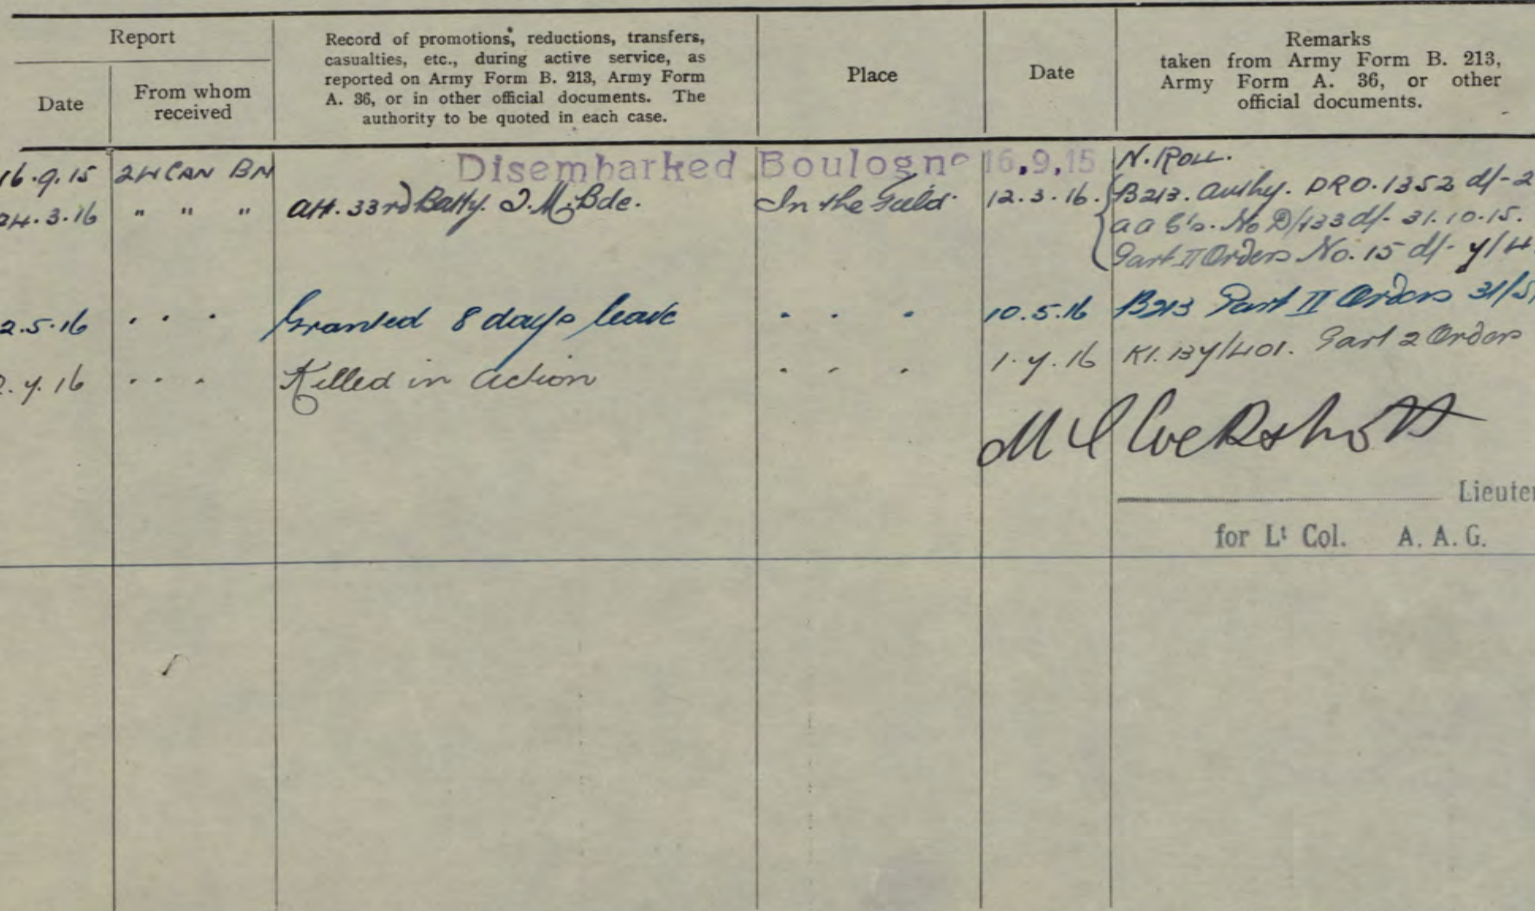 Report
Date
From whom
received
Record of promotions, reductions, transfers,
casualties, etc., during active service, as
reported on Army Form B. 213, Army Form
A. 36, or in other official documents. The
authority to be quoted in each case.
Place
Date
Remarks
taken from Army Form B. 213,
Army Form A. 36, or other
official documents.
16.9.15 24 CAN BN Disembarked Boulogne 16.9.15 N. ROLL.
24.3.16 " " " att. 33rd Batty. T. M. Bde. In the Field. 12.3.16. B213. Authy. DRO. 1352 d/- 2
D/133 d/- 31.10.15.
Part II Orders No. 15 d/- 7/4
2.5.16 " " " Granted 8 days leave " " " 10.5.16 B213 Part II Orders 31/5
.7.16 " " " Killed in action " " " 1.7.16 K1. 137/401. Part 2 Orders
Lieuten
for Lt Col. A. A. G.